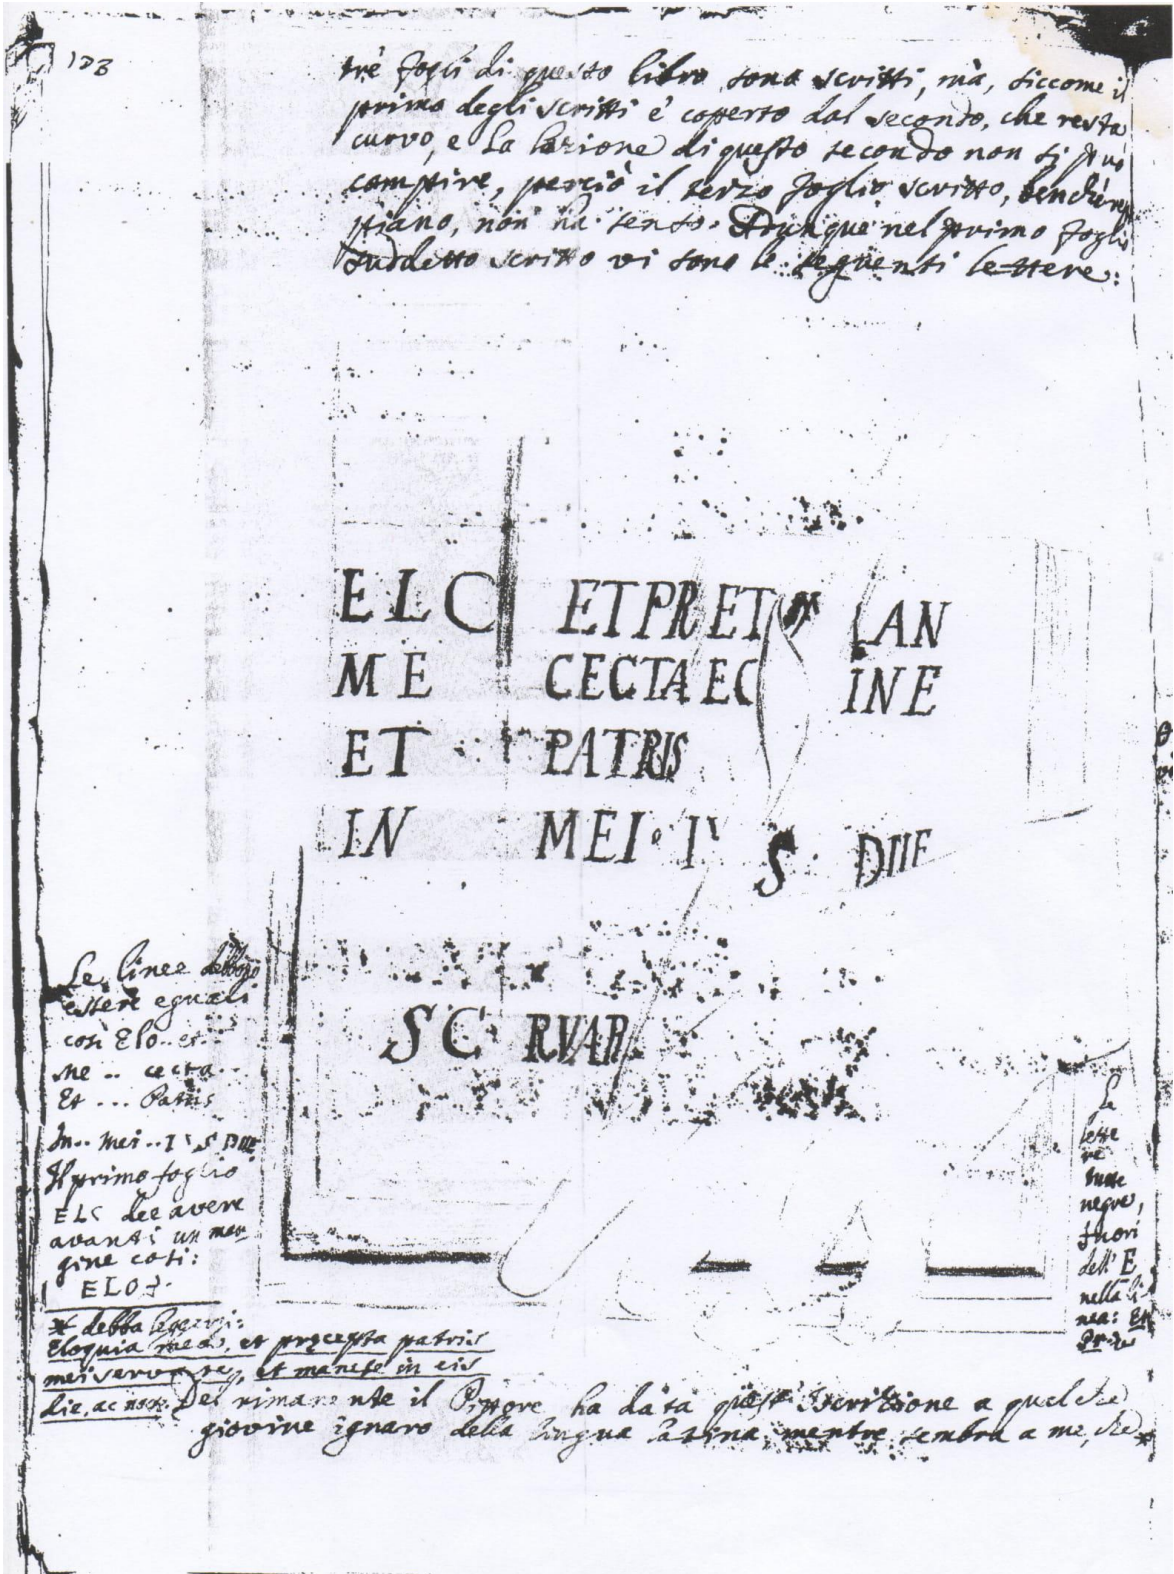 123
trè fogli di questo libro sono scritti, mà, siccome il
primo degli scritti è coperto dal secondo, che resta
curvo, e la lezione di questo secondo non si può
compire, perciò il terzo foglio scritto, benchè
piano, non ha senso. Adunque nel primo foglio
suddetto scritto vi sono le seguenti lettere:
ELC ETPRET LAN
ME CECTAEC INE
ET PATRIS
IN MEI I S DIIE
SC RVAR
Le linee debbono
essere eguali
così Elo.. et..
Me .. cecta...
Et ... Patris
In.. Mei.. I S DIIE
Il primo foglio
ELC dee avere
avanti un mar
gine così:
ELO
Le
lette
re
tutte
negre,
fuori
dell' E
nella li
nea: Et
* debba leggersi:
Eloquia mea, et precepta patris
mei servate, et manete in eis
die, ac nocte. Del rimanente il Pittore ha data quest' Iscrizione a qualche
giovine ignaro della lingua latina, mentre sembra a me, che *